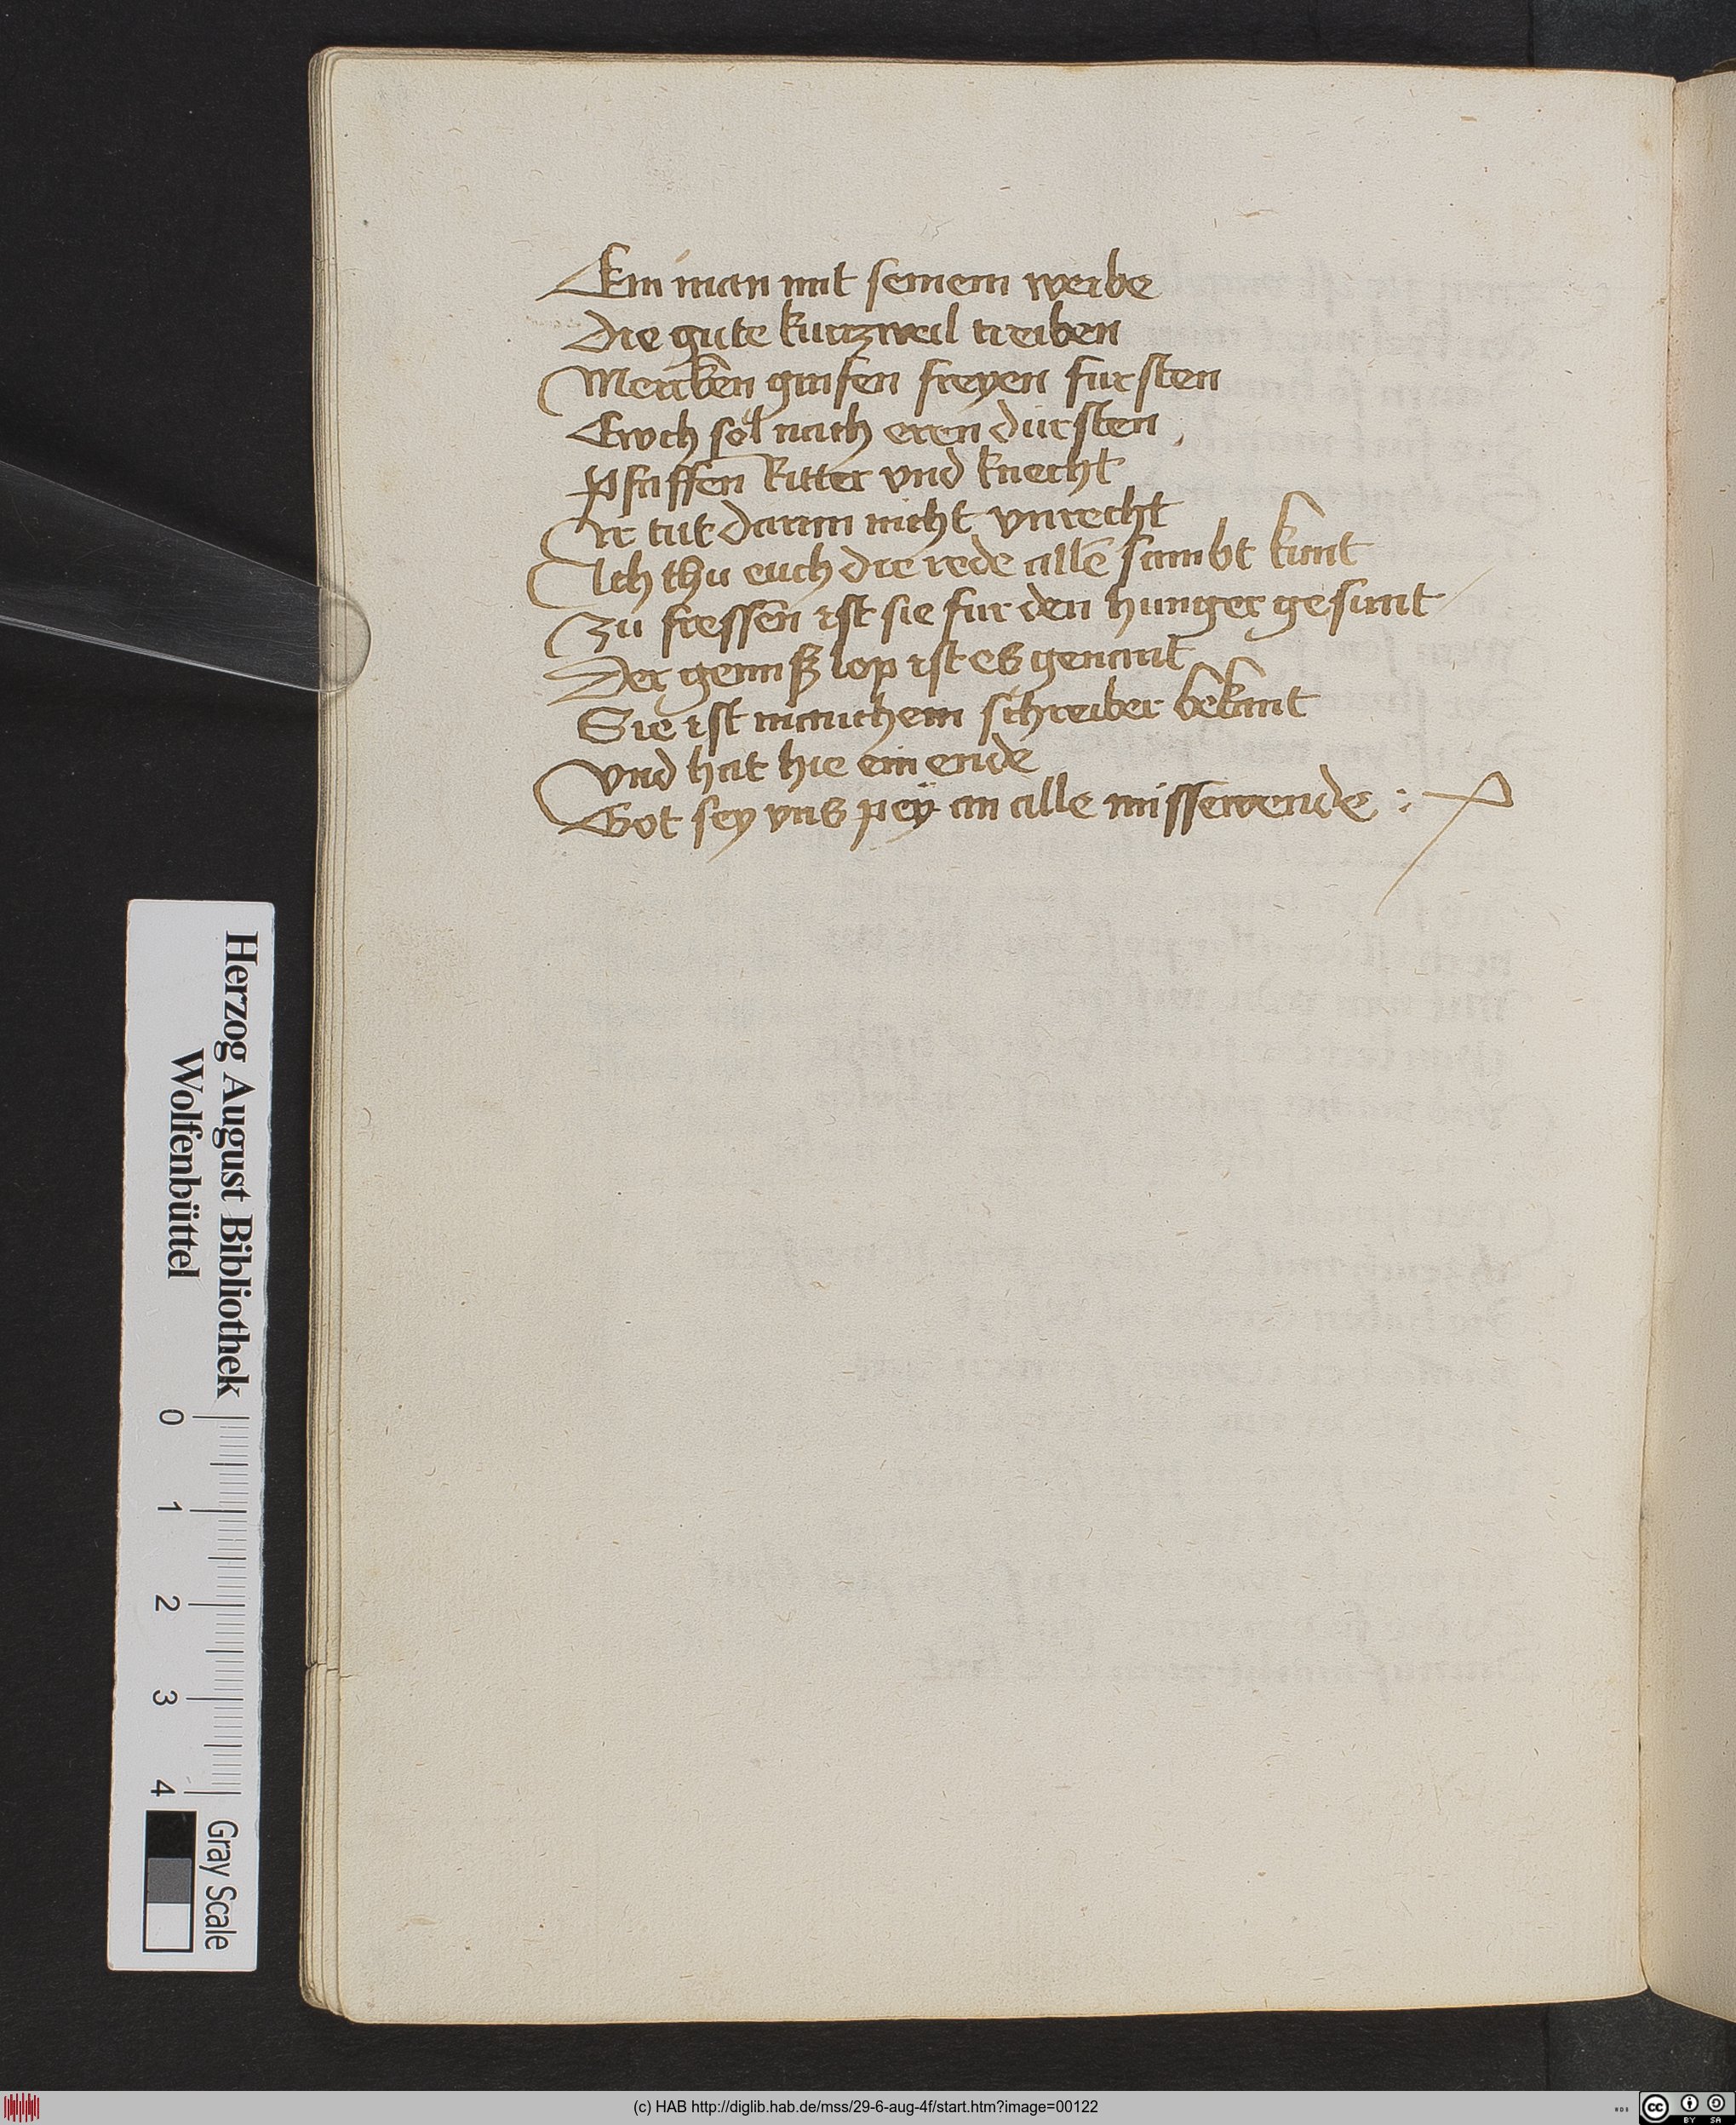 Ein man mit seinem weibe
Die gute kurtzweil treiben
Mercken grafen freyen fursten
Ewch sol nach eren dürsten
Pfaffen Ritter vnd knecht
Ir tut daran nicht vnrecht
Ich thu euch die rede allē sambt kunt
Zu fressen ist sie fur den hunger gesunt
Der gennß lop ist es genant
Sie ist manchem schreiber bekant
Vnd hat hie ein ende
Got sey vns pey an alle missewende :
Herzog August Bibliothek
Wolfenbüttel
0 1 2 3 4
Gray Scale
(c) HAB http://diglib.hab.de/mss/29-6-aug-4f/start.htm?image=00122
cc BY SA